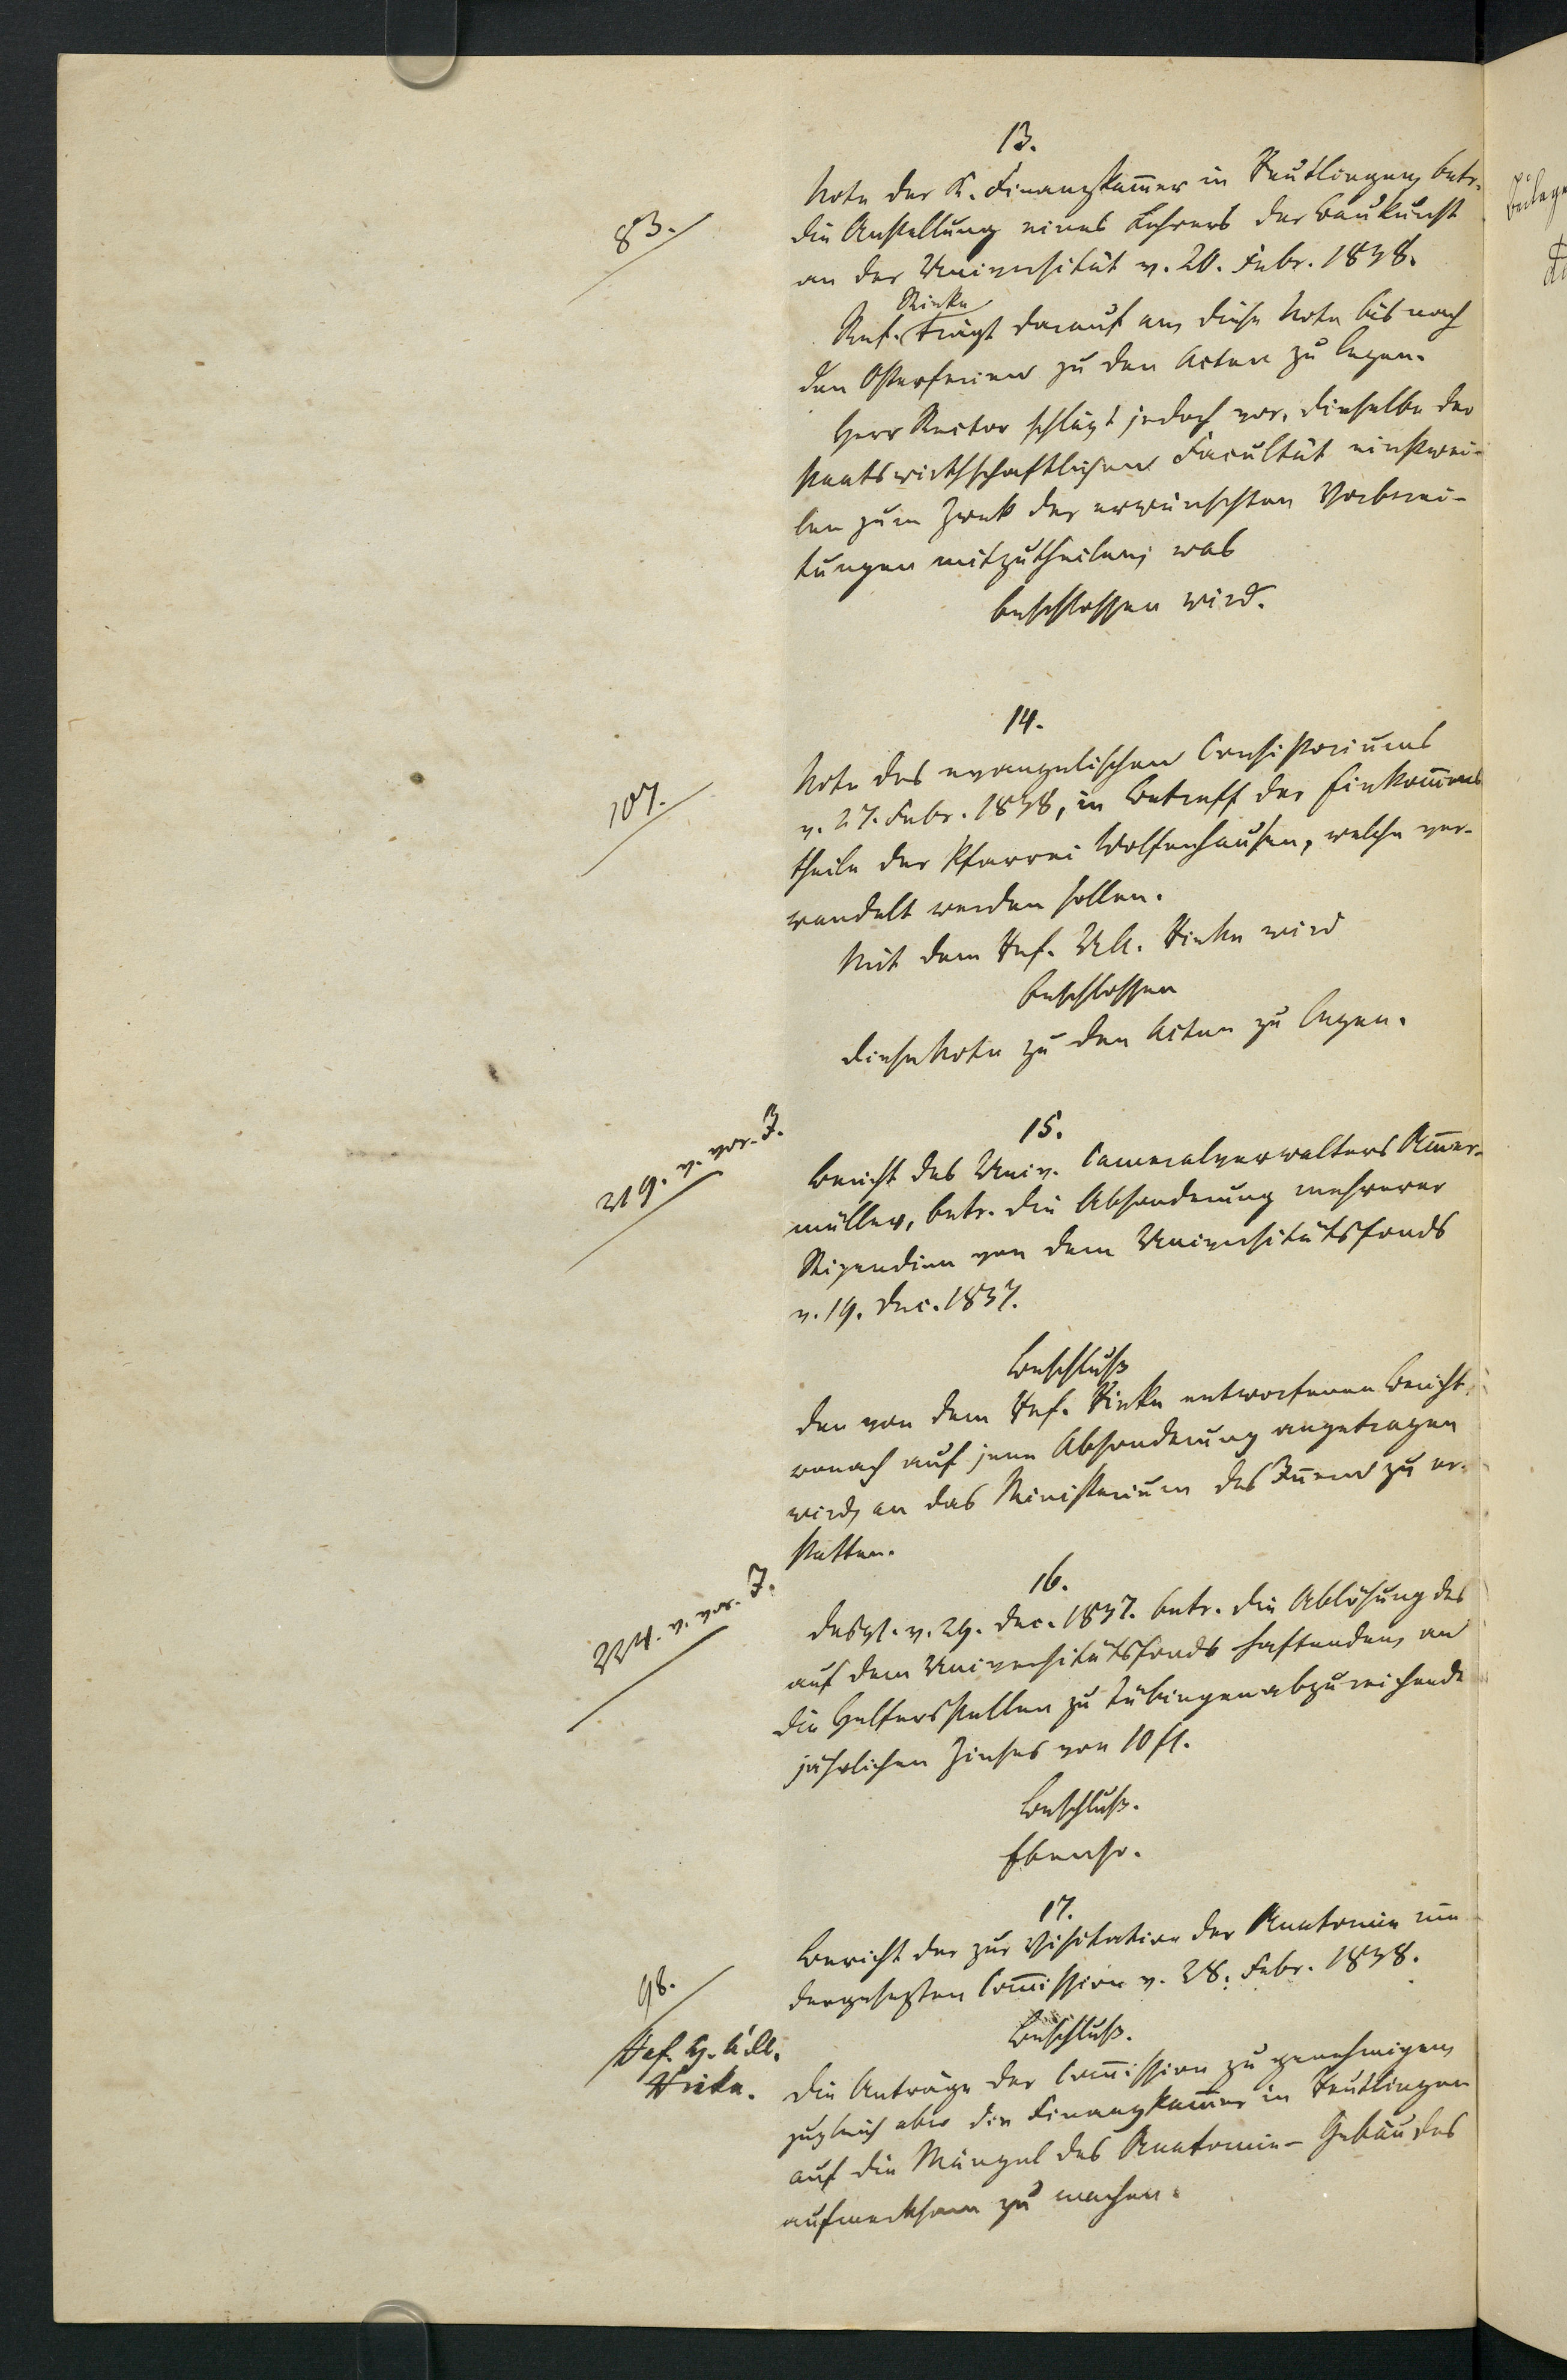 13.
83.
Note der K. Finanzkam̄er in Reutlingen, betr.
die Anstellung eines Lehrers der Baukunst
an der Universität v. 20. Febr. 1838.
Rieke
Ref. trägt darauf an, diese Note bis nach
den Osterferien zu den Acten zu legen.
Herr Rector schlägt jedoch vor, dieselbe der
staatswirthschaftlichen Facultät einstwei-
len zum Zwek der erwünschten Vorberei-
tungen mitzutheilen, was
beschlossen wird.
14.
107.
Note des evangelischen Consistoriums
v. 27. Febr. 1838, in Betreff der Einkom̄ens
theile der Pfarrei Wolfenhausen, welche ver-
wandelt werden sollen.
Mit dem Ref. Rieke wird
beschlossen
diese Note zu den Acten zu legen.
15.
219. v. vor. J.
Bericht des Univ. Cameralverwalters Am̄er-
müller, betr. die Absonderung mehrerer
Stipendien von dem Universitätsfonds
v. 19. Dec. 1837.
Beschluß
den von dem Ref. Rieke entworfenen Bericht,
wonach auf jene Absonderung angetragen
wird, an das Ministerium des In̄ern zu er-
statten.
16.
224. v. vor. J.
Desgl. v. 29. Dec. 1837. betr. die Ablösung des
auf dem Universitätsfonds haftenden, an
die Helfersstellen zu Tübingen abzureichende
jährlichen Zinses von 10 fl.
Beschluß.
Ebenso.
17.
98.
Bericht der zur Visitation der Anatomie nie
dergesetzten Com̄ission v. 28. Febr. 1838.
Beschluß.
Ref. H.
Rieke.
Die Anträge der Com̄ission zu genehmigen,
zugleich aber die Finanzkam̄er in Reutlingen
auf die Mängel des Anatomie-Gebäudes
aufmerksam zu machen.